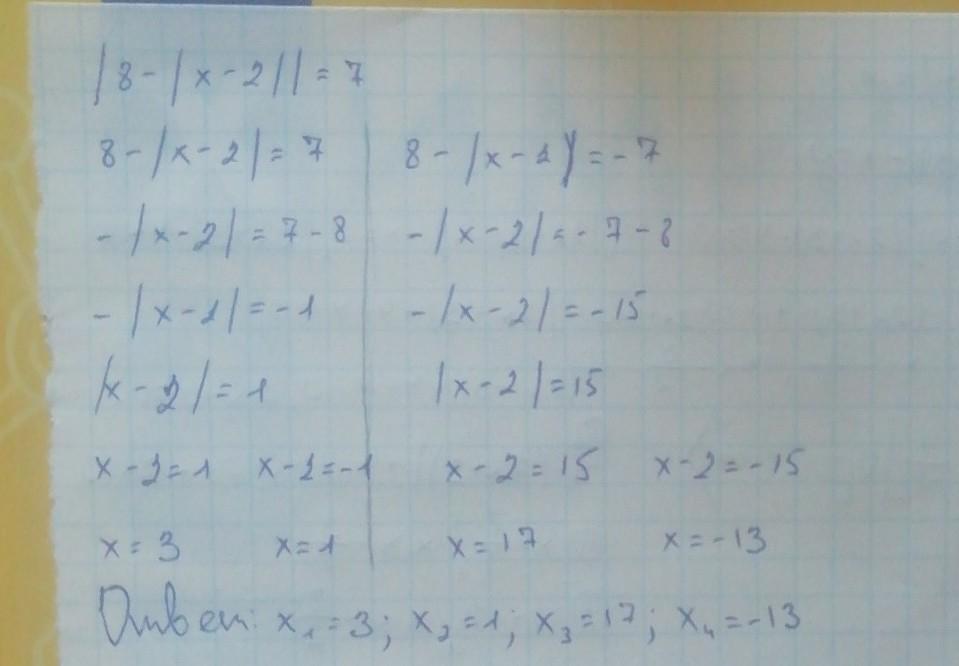 |8-|x-2||=7
8-|x-2|=7 8-|x-2|=-7
-|x-2|=7-8 -|x-2|=-7-8
-|x-2|=-1 -|x-2|=-15
|x-2|=1 |x-2|=15
x-2=1 x-2=-1 x-2=15 x-2=-15
x=3 x=1 x=17 x=-13
Ответ: x₁=3; x₂=1; x₃=17; x₄=-13